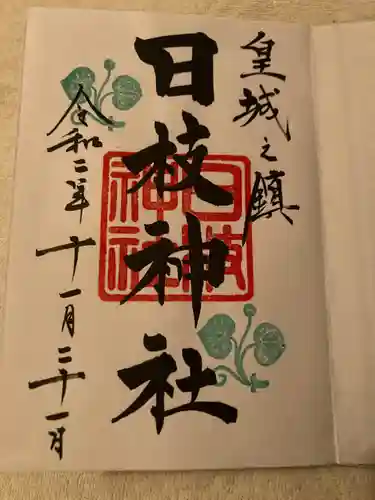 皇城之鎮
日枝神社
日枝神社
令和二年十一月二十一日